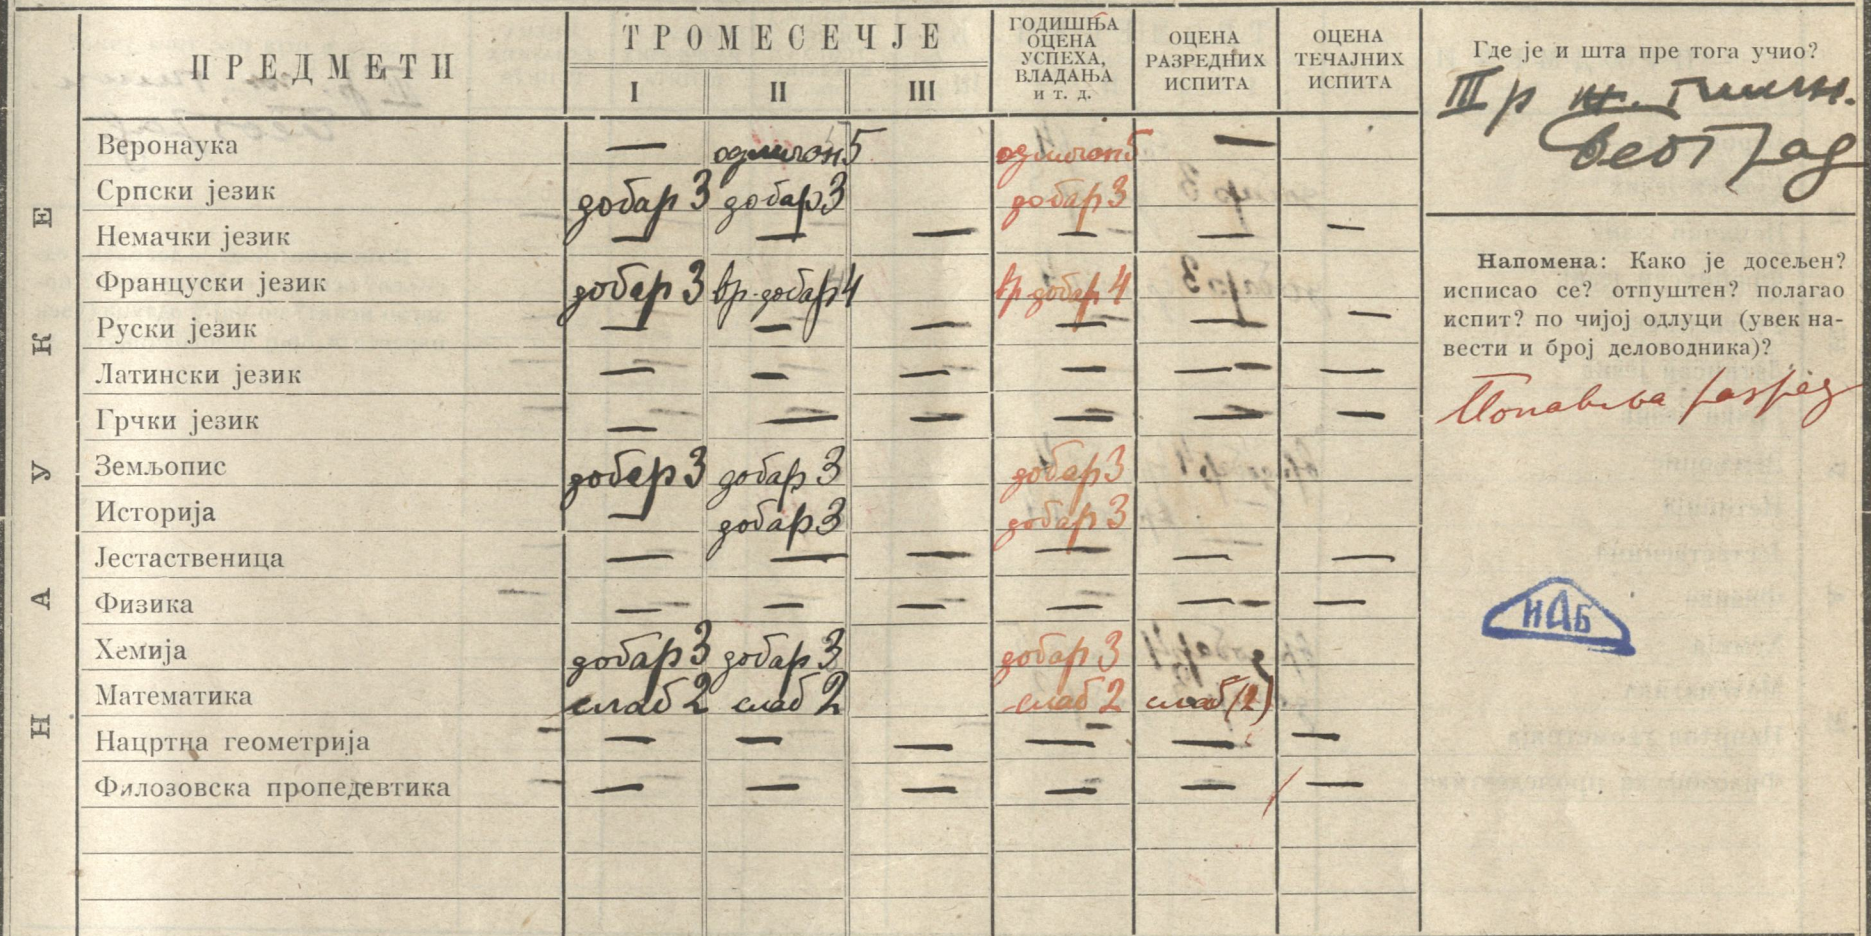 НАУКЕ
ПРЕДМЕТИ
ТРОМЕСЕЧЈЕ
I II III
ГОДИШЊА
ОЦЕНА
УСПЕХА,
ВЛАДАЊА
и т. д.
ОЦЕНА
РАЗРЕДНИХ
ИСПИТА
ОЦЕНА
ТЕЧАЈНИХ
ИСПИТА
Веронаука — одличан 5 одличан 5 —
Српски језик добар 3 добар 3 добар 3
Немачки језик — — — — — —
Француски језик добар 3 вр. добар 4 вр. добар 4
Руски језик — — — — — —
Латински језик — — — — — —
Грчки језик — — — — — —
Земљопис добар 3 добар 3 добар 3
Историја — добар 3 добар 3
Јестаственица — — — — — —
Физика — — — — — —
Хемија добар 3 добар 3 добар 3
Математика слаб 2 слаб 2 слаб 2 слаб (2)
Нацртна геометрија — — — — — —
Филозовска пропедевтика — — — — — —
Где је и шта пре тога учио?
III р ж. Гимн.
Београд
Напомена: Како је досељен?
исписао се? отпуштен? полагао
испит? по чијој одлуци (увек на-
вести и број деловодника)?
Понавља разред
ИАБ